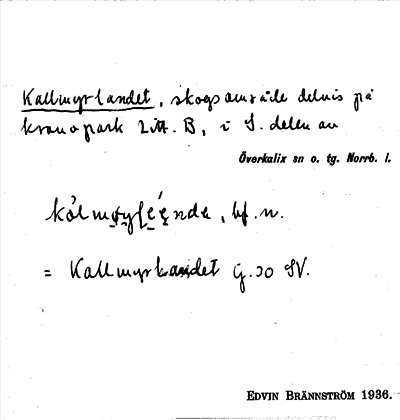 Kallmyrlandet, skogsområde delvis på
kronopark Litt. B, i S. delen av
Överkalix sn o. tg. Norrb. l.
bf. n.
= Kallmyrlandet G. 30 SV.
EDVIN BRÄNNSTRÖM 1936.